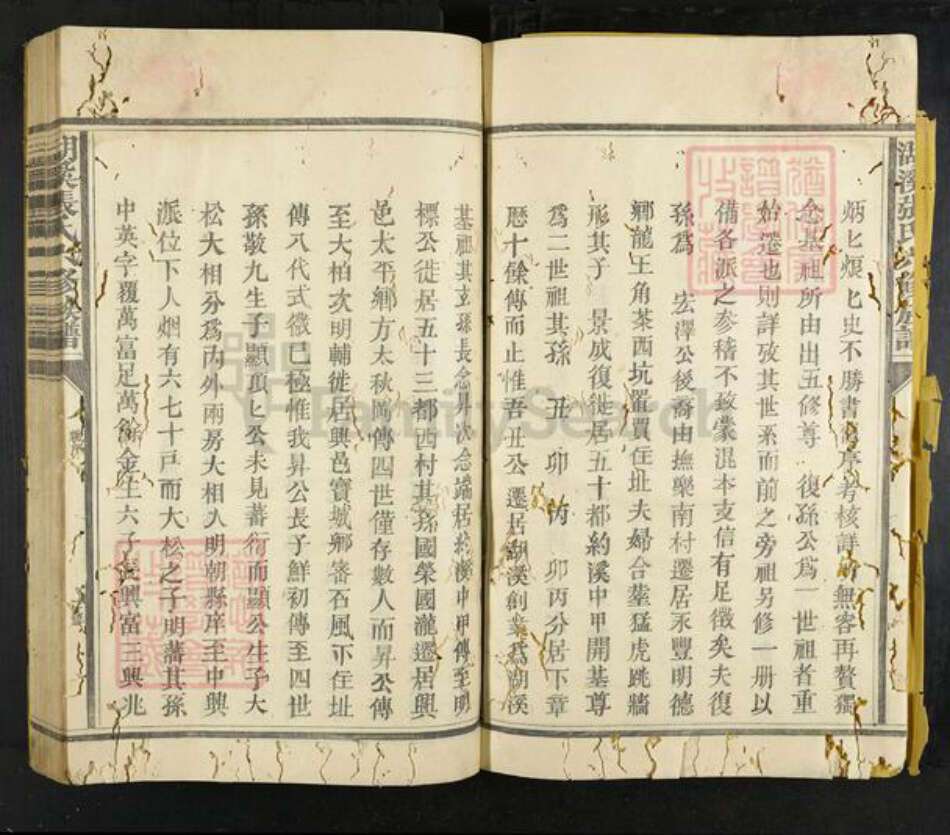 湖溪張氏 修族譜
炳匕烺匕史不勝書 序考核詳 無容再贅獨
念基祖所由出五修尊 復孫公爲一世祖者重
始遷也則詳攷其世系而前之旁祖另修一册以
備各派之參稽不致蒙混本支信有足徵矣夫復
孫爲 宏澤公後裔由撫樂南村遷居永豐明德
鄉龍王角茶西坑置買住址夫婦合塟猛虎跳牆
形其子 景成復徙居五十都約溪中甲開基尊
爲二世祖其孫 丑 卯 丙 卯丙分居下章
歷十餘傳而止惟吾丑公 遷居湖溪創業爲湖溪
基祖其玄孫長念昇次念端居約溪中甲傳至明
標公徙居五十三都西村其孫國榮國瀧遷居興
邑太平鄉方太秋 傳四世僅存數人而昇公傳
至大柏次明輔徙居興邑寳城鄉審石風下住址
傳八代式微已極惟我昇公長子鮮初傳至四世
孫敬九生子顯頂匕公未見蕃衍而顯公生子大
松大相分爲内外兩房大相入明朝縣庠至中興
派位下人烟有六七十戸而大松之子明藩其孫
中英字覆萬富足萬餘金生六子長興富三興兆
湖溪張氏 修族譜